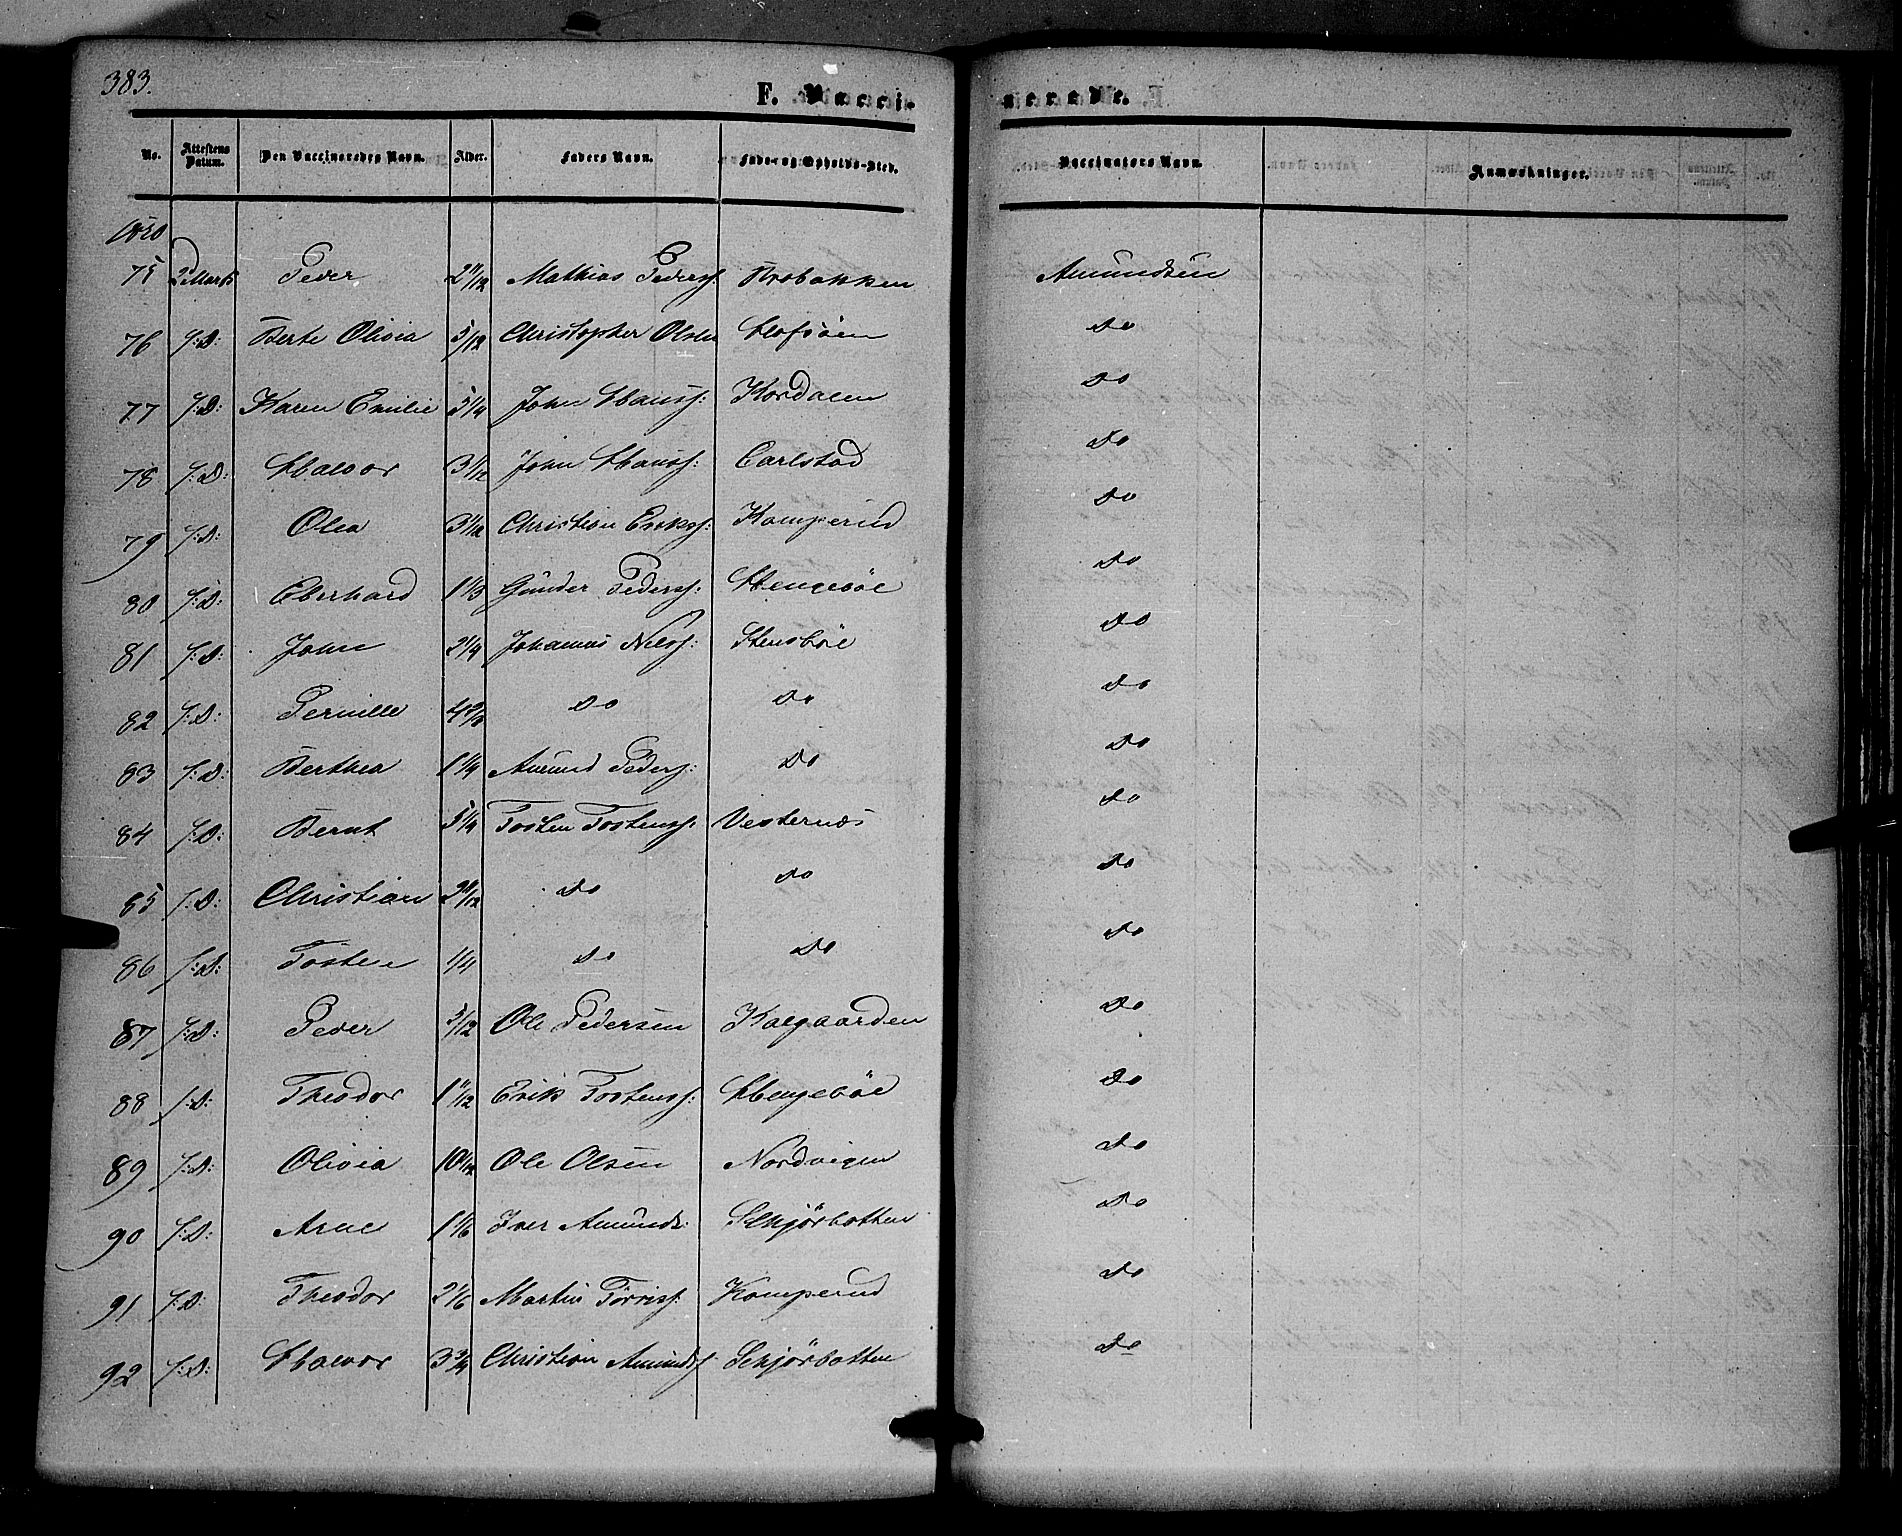 383.
F. Vacci-
nerede.
No. Attestens Datum. Den Vaccineredes Navn. Alder. Faders Navn. Føde- og Opholds-Sted. Vaccinators Navn. Anmærkninger.
1850
75 2 Marts Peder 2 11/12 Mathias Peders: Brobakken Amundsen
76 s:D: Berte Olivia 5/12 Christopher Olsen Do
77 s:D: Karen Emilie 5 1/4 John Hanss: Kordalen Do
78 s:D: Halvor 3 1/12 John Hanss: Carlstad Do
79 s:D: Olea 3 1/12 Christian Eriks: Kamperud Do
80 s:D: Eberhard 1 1/3 Gunder Peders: Hengebøe Do
81 s:D: John 2 1/4 Johannes Nilss: Stensbøe Do
82 s:D: Pernille Do Do Do
83 s:D: Berthea 1 1/4 Amund Peders: Do Do
84 s:D: Bernt 5 1/4 Tosten Tostenss: Vesternæs Do
85 s:D: Christian Do Do Do
86 s:D: Tosten 1/4 Do Do Do
87 s:D: Peder 5/12 Ole Pedersen Kalgaarden Do
88 s:D: Theodor 1 11/12 Erik Tostenss: Hengebøe Do
89 s:D: Olivia 10 1/12 Ole Olsen Nordvigen Do
90 s:D: Arne 1 1/6 Iver Amunds: Schjørbotten Do
91 s:D: Theodor 2 1/6 Martin Torriss: Kamperud Do
92 s:D: Halvor 3 3/4 Christian Amunds: Schjørbotten Do